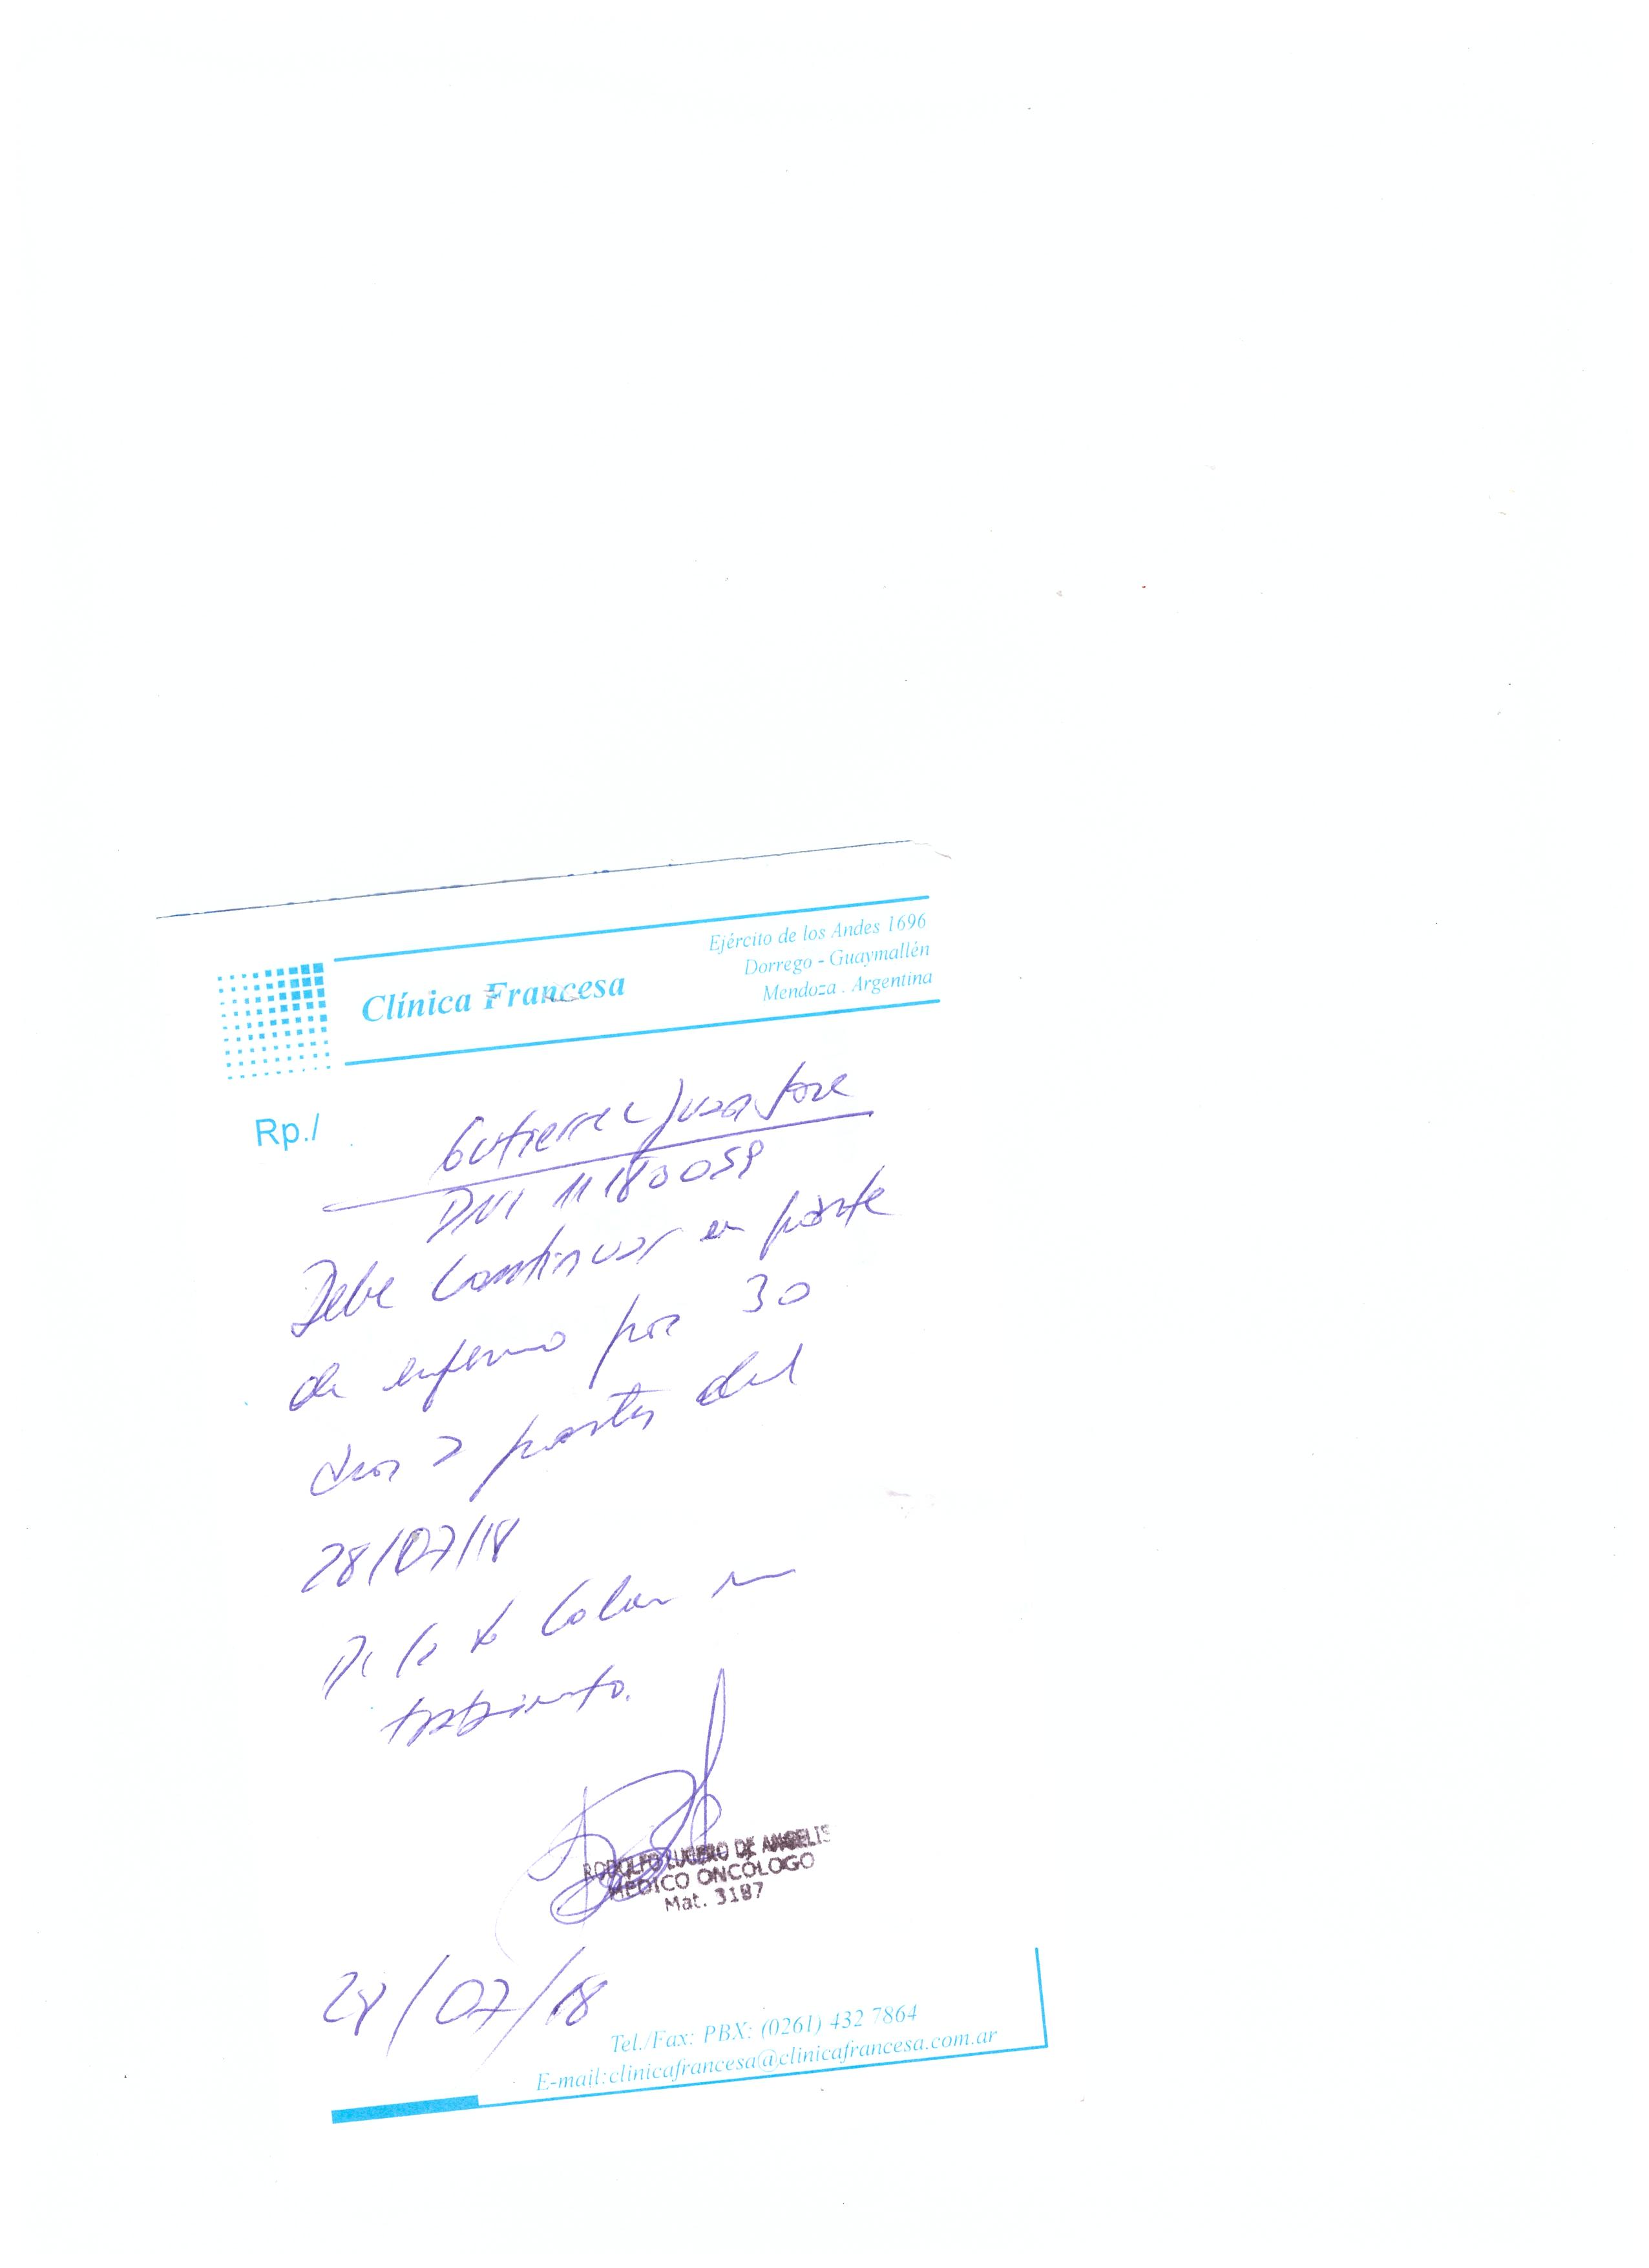 Clínica Francesa
Ejército de los Andes 1696
Dorrego - Guaymallén
Mendoza . Argentina
Rp./
Gutierrez Juan Jose
DNI 11180059
Debe continuar en parte
de enfermo por 30
dias a partir del
28/07/18
D. Ca de Colon en
tratamiento.
RODOLFO LUCERO DE ANGELIS
MEDICO ONCOLOGO
Mat. 3187
28/07/18
Tel./Fax: PBX: (0261) 432 7864
E-mail:clinicafrancesa@clinicafrancesa.com.ar